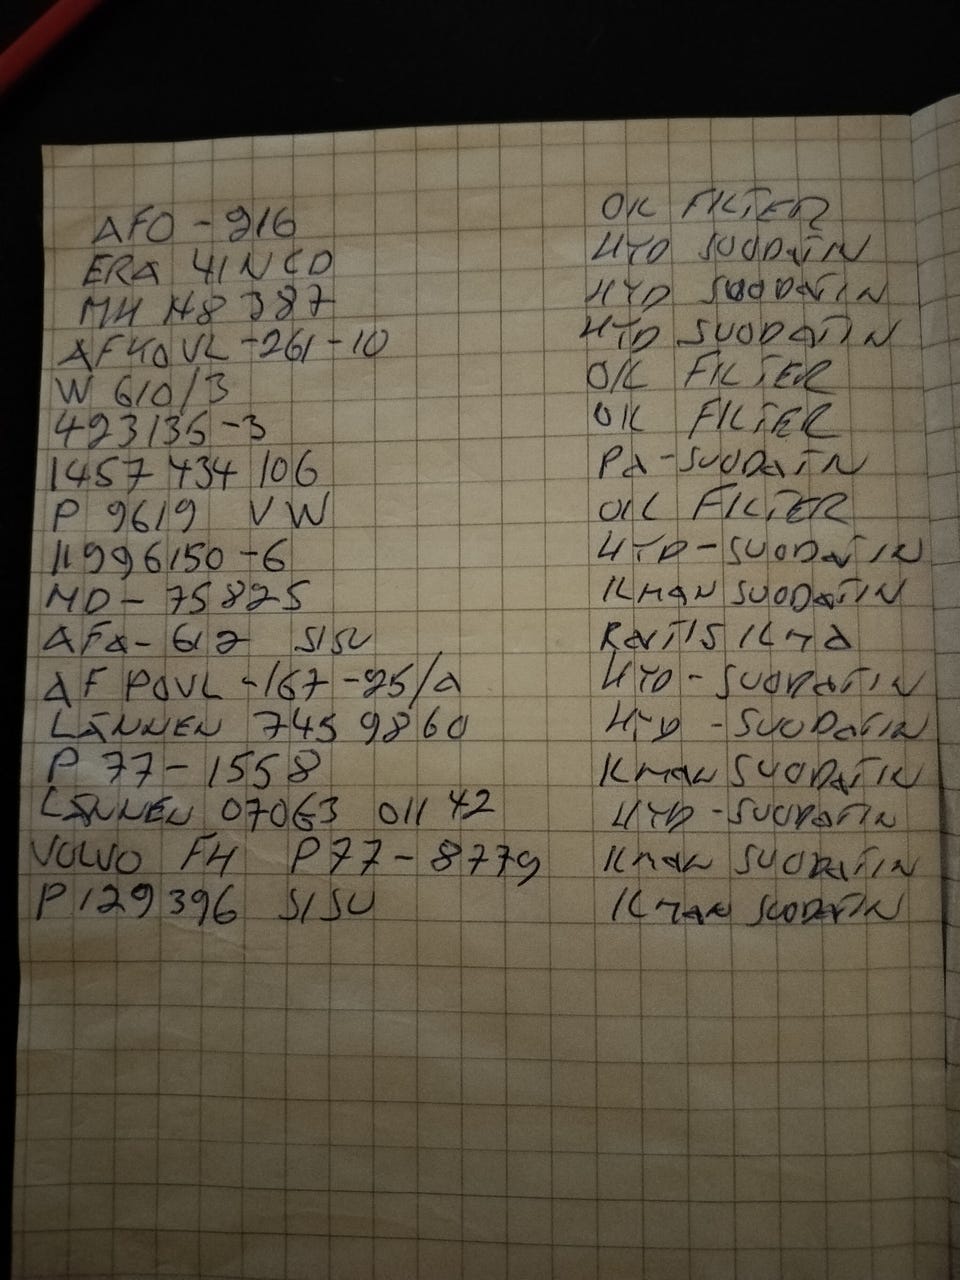 AFO-916 OIL FILTER
ERA 41NCD HYD SUODATIN
MH H8387 HYD SUODATIN
AFKOVL-261-10 HYD SUODATIN
W 610/3 OIL FILTER
423135-3 OIL FILTER
1457 434 106 PA-SUODATIN
P 9619 VW OIL FILTER
11996150-6 HYD-SUODATIN
MD-75825 ILMAN SUODATIN
AFA-612 SISU RAITIS ILMA
AF POVL-167-25/A HYD-SUODATIN
LÄNNEN 7459860 HYD-SUODATIN
P 77-1558 ILMAN SUODATIN
LÄNNEN 07063 01142 HYD-SUODATIN
VOLVO FH P77-8779 ILMAN SUODATIN
P129396 SISU ILMAN SUODATIN